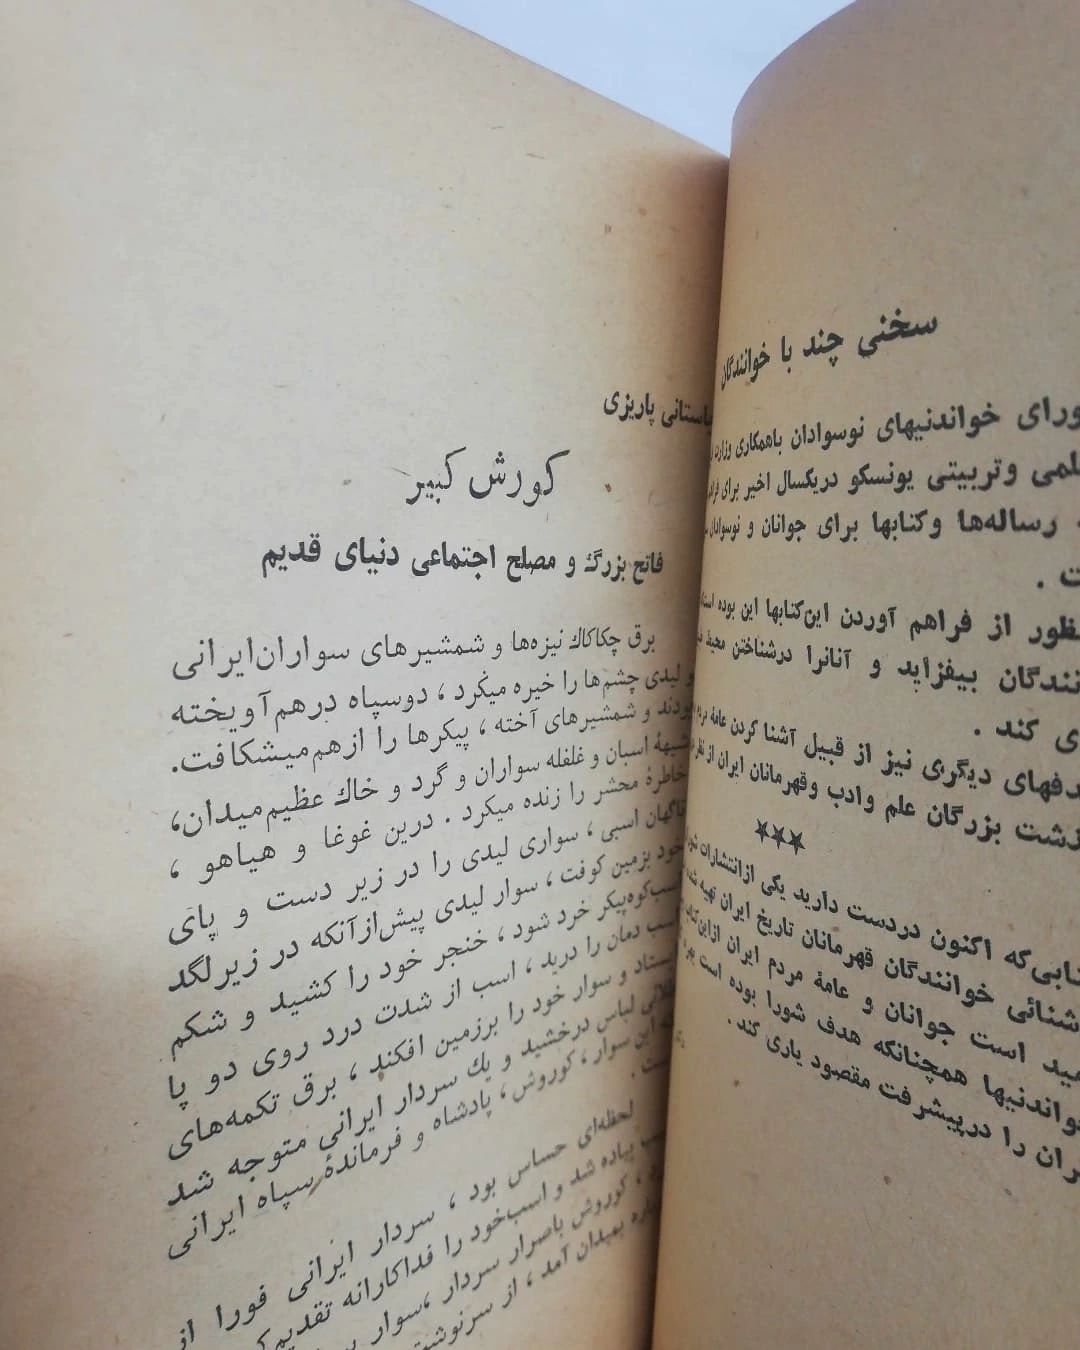 سخنی چند با خوانندگان
خواندنیهای نوسوادان باهمکاری
وتربیتی یونسکو دریکسال اخیر برای
رساله‌ها وکتابها برای جوانان و نوسوادان
.
از فراهم آوردن این‌کتابها این بوده
بیفزاید و آنانرا درشناختن محیط
کند .
دیگری نیز از قبیل آشنا کردن عامهٔ مردم
بزرگان علم وادب وقهرمانان ایران از نظر
★★★
که اکنون دردست دارید یکی ازانتشارات
خوانندگان قهرمانان تاریخ ایران تهیه شده
است جوانان و عامهٔ مردم ایران ازاین‌کتاب
همچنانکه هدف شورا بوده است بهره
را درپیشرفت مقصود یاری کند .
باستانی پاریزی
کورش کبیر
فاتح بزرگ و مصلح اجتماعی دنیای قدیم
برق چکاکاك نیزه‌ها و شمشیرهای سواران‌ایرانی
و لیدی چشم‌ها را خیره میکرد ، دوسپاه درهم‌آویخته
بودند و شمشیرهای آخته ، پیکرها را ازهم‌میشکافت.
شیههٔ اسبان و غلغله سواران و گرد و خاك عظیم‌میدان،
خاطرهٔ محشر را زنده میکرد . درین غوغا و هیاهو ،
ناگهان اسبی ، سواری لیدی را در زیر دست و پای
خود بزمین کوفت ، سوار لیدی پیش‌ازآنکه در زیرلگد
اسب‌کوه‌پیکر خرد شود ، خنجر خود را کشید و شکم
اسب دمان را درید ، اسب از شدت درد روی دو پا
ایستاد و سوار خود را برزمین افکند ، برق تکمه‌های
طلائی لباس درخشید و یك سردار ایرانی متوجه شد
که این سوار ، کوروش ، پادشاه و فرماندهٔ سپاه ایرانی
است .
لحظه‌ای حساس بود ، سردار ایرانی فورا از
پیاده شد و اسب‌خود را فداکارانه
کوروش باصرار سردار ،سوار
بمیدان آمد ، از